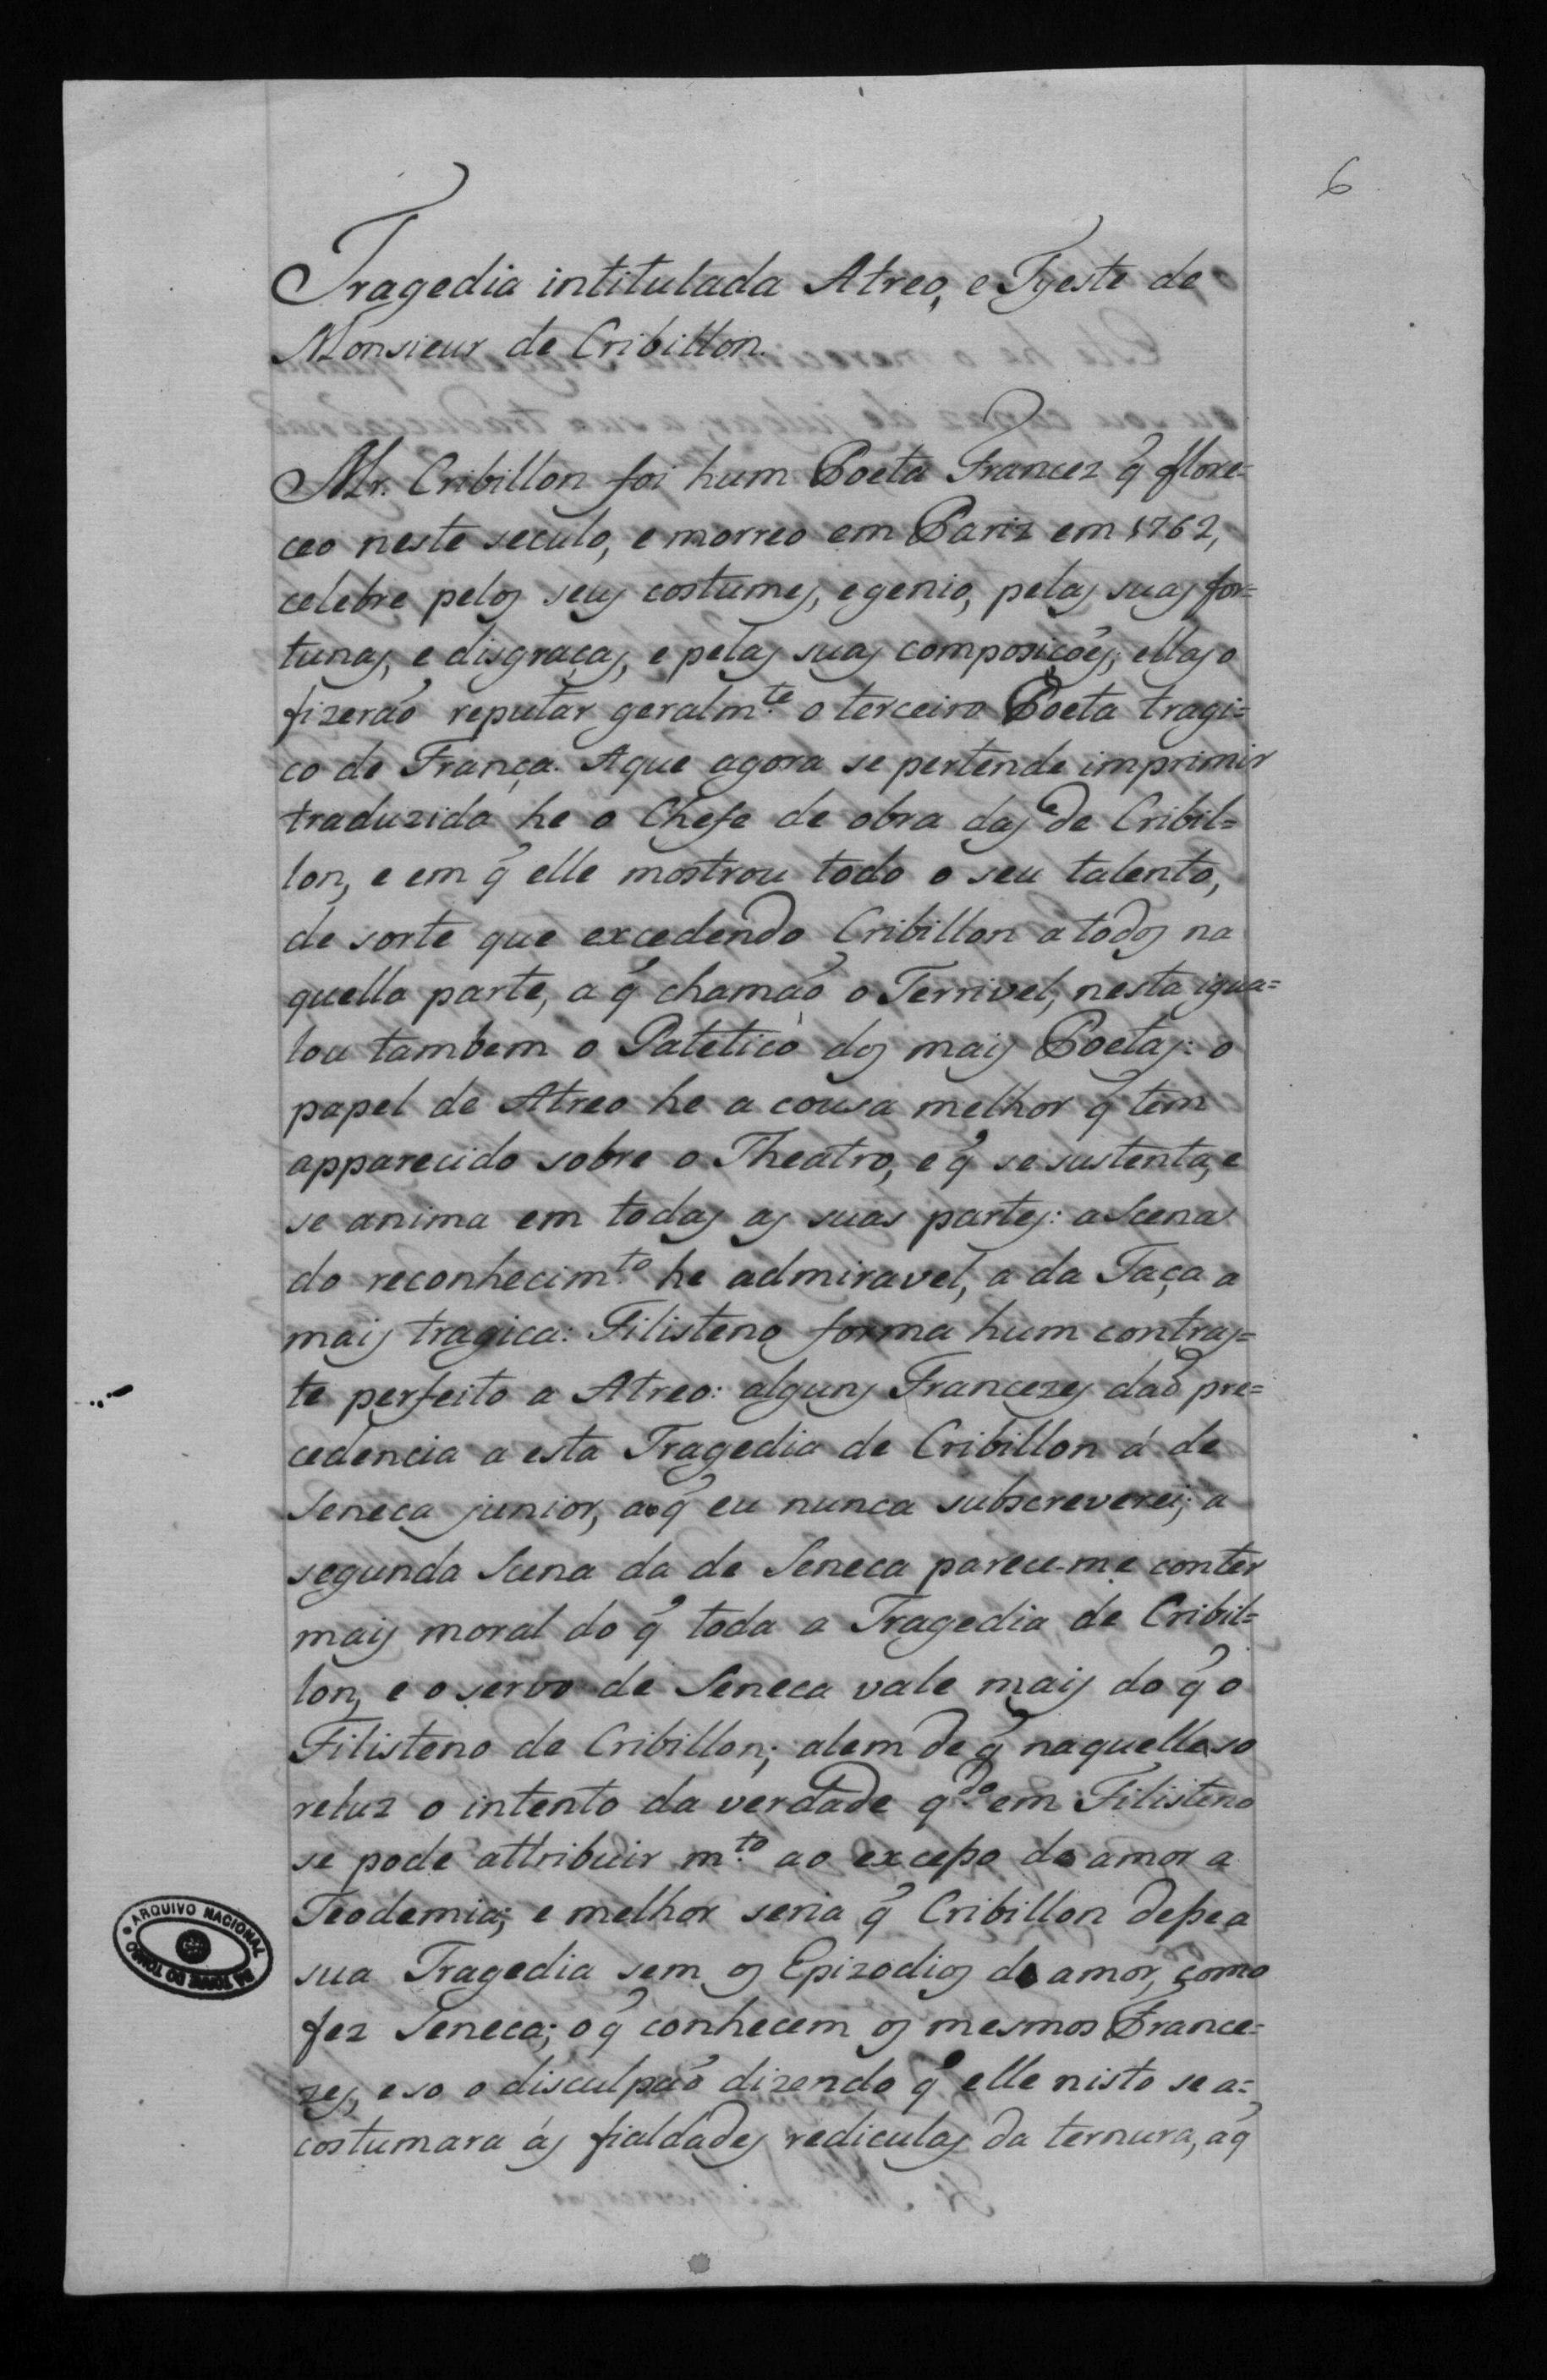 6
Tragedia intitulada Atreo, e Tyeste de
Monsieur de Cribillon.
Mr. Cribillon foi hum Poeta Francez q̃ flore=
ceo neste seculo, e morreo em Pariz em 1762,
celebre pelos seus costumes, e genio, pelas suas for=
tunas, e disgraças, e pelas suas composições; ellas o
fizerão reputar geralm.te o terceiro Poeta tragi=
co de França. A que agora se pertende imprimir
traduzida he o Chefe de obra das de Cribil=
lon, e em q̃ elle mostrou todo o seu talento,
de sorte que excedendo Cribillon a todos na
quella parte, a q̃ chamão o Terrivel, nesta igua=
lou tambem o Patetico dos mais Poetas: o
papel de Atreo he a cousa melhor q̃ tem
apparecido sobre o Theatro, e q̃ se sustenta, e
se anima em todas as suas partes: a Scena
do reconhecim.to he admiravel, a da Taça a
mais tragica: Filisteno forma hum contras=
te perfeito a Atreo: alguns Francezes dão pre=
cedencia a esta Tragedia de Cribillon á de
Seneca junior, ao q̃ eu nunca subscreverei; a
segunda Scena da de Seneca parece-me conter
mais moral do q̃ toda a Tragedia de Cribil=
lon, e o servo de Seneca vale mais do q̃ o
Filisteno de Cribillon; alem de q̃ naquelle so
reluz o intento da verdade q.do em Filisteno
se pode attribuir m.to ao excesso do amor a
Teodemia; e melhor seria q̃ Cribillon desse a
sua Tragedia sem os Epizodios de amor, como
fez Seneca; o q̃ conhecem os mesmos France=
zes, e so o disculpão dizendo q̃ elle nisto se a=
costumara ás fialdades rediculas da ternura, a q̃
ARQUIVO NACIONAL DA TORRE DO TOMBO